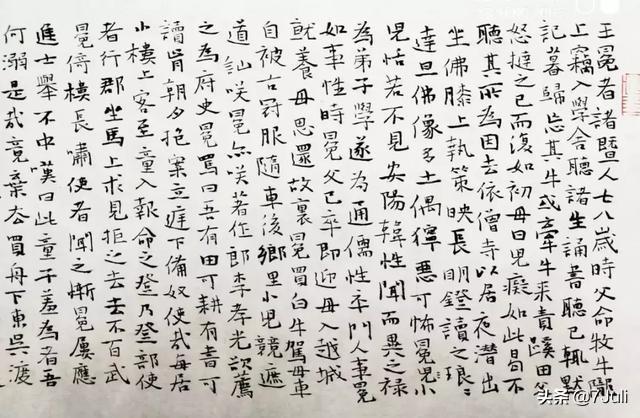 王冕者諸暨人七八歲時父命牧牛隴
上竊入學舍聽諸生誦書聽已輒默
記暮歸忘其牛或牽牛來責蹊田父
怒撻之已而復如初母曰兒癡如此曷不
聽其所為因去依僧寺以居夜潛出
坐佛膝上執策映長明鐙讀之琅〻
達旦佛像多土偶獰惡可怖冕兒小
兒恬若不見安陽韓性聞而異之祿
為弟子學遂為通儒性卒門人事冕
如事性時冕父已卒即迎母入越城
就養母思還故裏冕買白牛駕母車
自被古冠服隨車後鄉里小兒競遮
道訕咲冕亦咲著作郎李孝光欲薦
之為府史冕罵曰吾有田可耕有書可
讀肯朝夕抱案立庭下備奴使哉每居
小樓上客至童入報命之登乃登部使
者行郡坐馬上求見拒之去去不百武
冕倚樓長嘯使者聞之慚冕屢應
進士舉不中嘆曰此童子羞為者吾
何溺是哉竟棄去買舟下東吳渡
头条 @7Juli